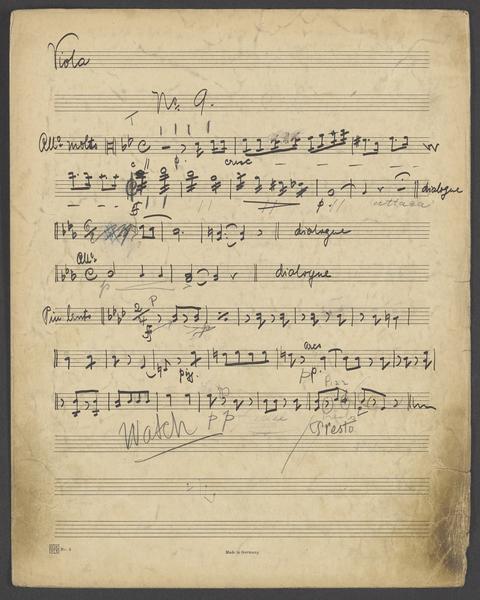 Viola
No. 9.
All° molto p. cresc
ff p. attaca dialogue
dialogue
All°
p dialogue
Piu lento ff p
piz. arco pp.
Pizz
Watch pp Presto
Nr. 3 Made in Germany